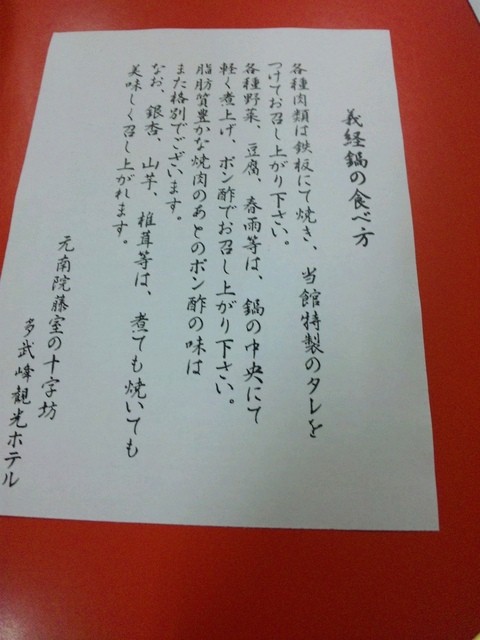 義経鍋の食べ方
各種肉類は鉄板にて焼き、当館特製のタレを
つけてお召し上がり下さい。
各種野菜、豆腐、春雨等は、鍋の中央にて
軽く煮上げ、ポン酢でお召し上がり下さい。
脂肪質豊かな焼肉のあとのポン酢の味は
また格別でございます。
なお、銀杏、山芋、椎茸等は、煮ても焼いても
美味しく召し上がれます。
元南院藤室の十字坊
多武峰観光ホテル